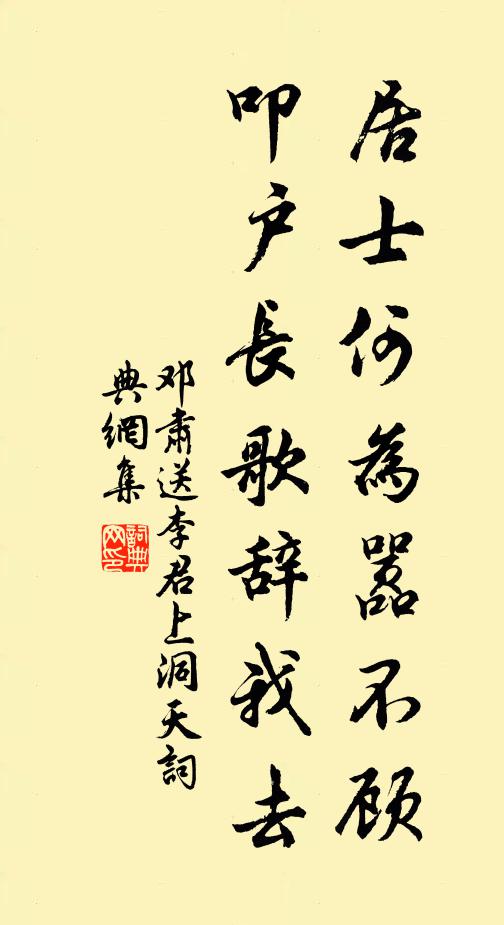 居士何為嚣不顾
叩户長歌辞我去
邓肅送李君上洞天詞
典網集
詞典网印